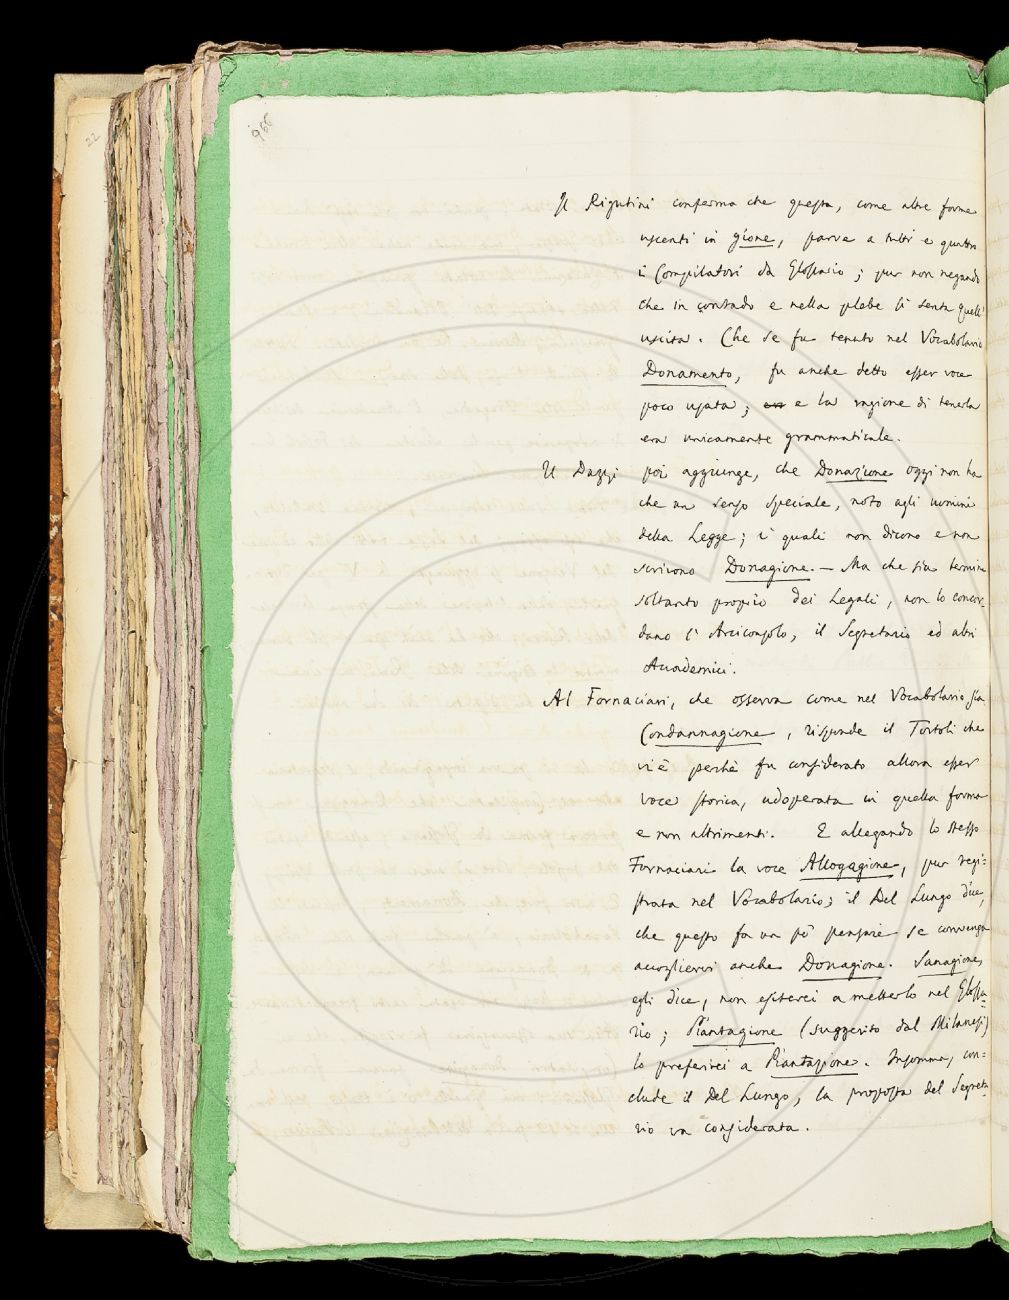 966
22
Il Rigutini conferma che questa, come altre forme
uscenti in gione, parve a tutti e quattro
i Compilatori da Glossario; pur non negando
che in contado e nella plebe si senta quell'
uscita. Che se fu tenuto nel Vocabolario
Donamento, fu anche detto esser voce
poco usata; e la ragione di tenerla
era unicamente grammaticale.
Il Dazzi poi aggiunge, che Donazione oggi non ha
che un senso speciale, noto agli uomini
della Legge; i quali non dicono e non
scrivono Donagione. — Ma che sia termine
soltanto proprio dei Legali, non lo concor-
dano l'Arciconsolo, il Segretario ed altri
Accademici.
Al Fornaciari, che osserva come nel Vocabolario sia
Condannagione, risponde il Tortoli che
vi è perchè fu considerato allora esser
voce storica, adoperata in quella forma
e non altrimenti. E allegando lo stesso
Fornaciari la voce Allogagione, pur regi=
strata nel Vocabolario; il Del Lungo dice,
che questo fa un pò pensare se convenga
accoglierci anche Donagione. Sanagione,
egli dice, non esiterei a metterlo nel Glossa=
rio; Piantagione (suggerito dal Milanesi)
lo preferirei a Piantazione. Insomma, con=
clude il Del Lungo, la proposta del Segreta=
rio va considerata.